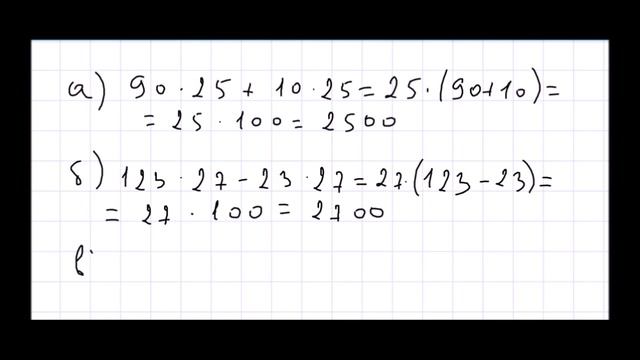 а) 90 · 25 + 10 · 25 = 25 · (90+10) =
= 25 · 100 = 2500
б) 123 · 27 - 23 · 27 = 27 · (123 - 23) =
= 27 · 100 = 2700
в